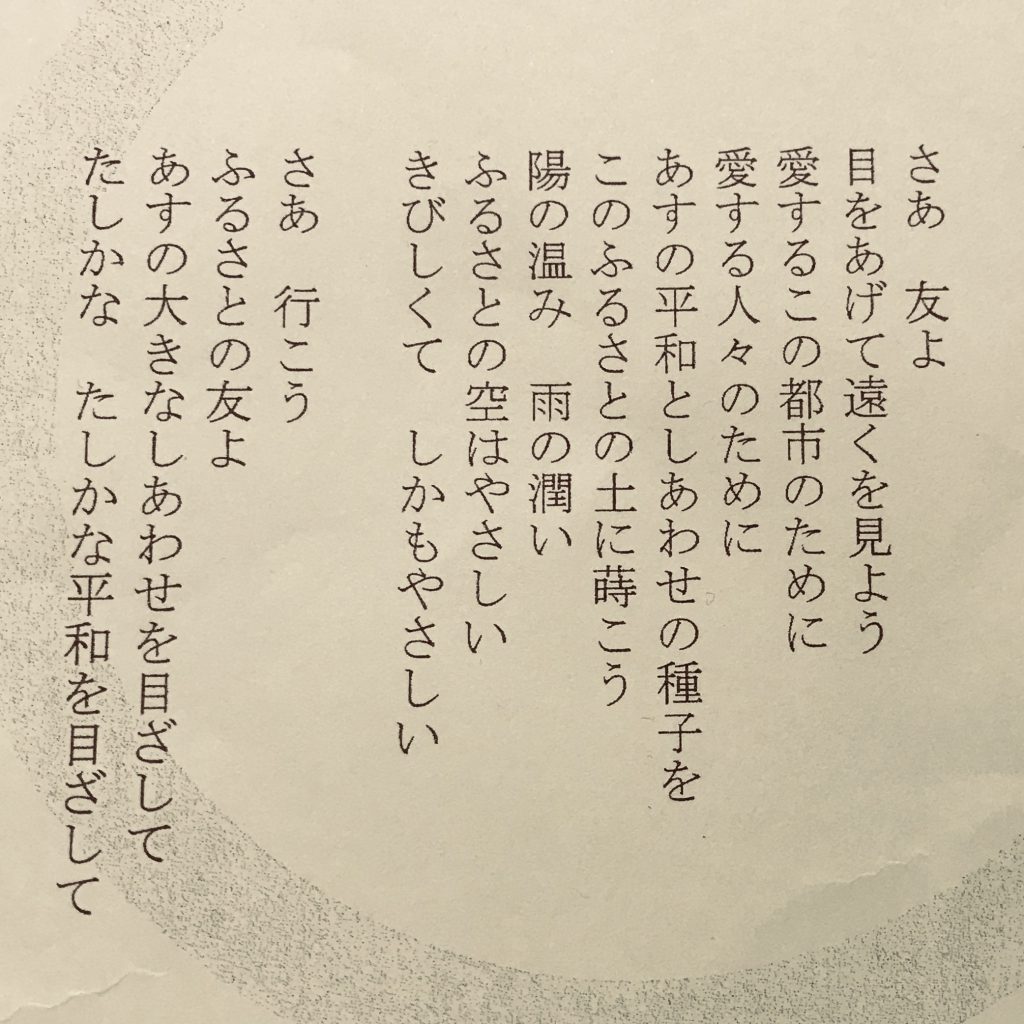 さあ　友よ
目をあげて遠くを見よう
愛するこの都市のために
愛する人々のために
あすの平和としあわせの種子を
このふるさとの土に蒔こう
陽の温み　雨の潤い
ふるさとの空はやさしい
きびしくて　しかもやさしい
さあ　行こう
ふるさとの友よ
あすの大きなしあわせを目ざして
たしかな　たしかな平和を目ざして